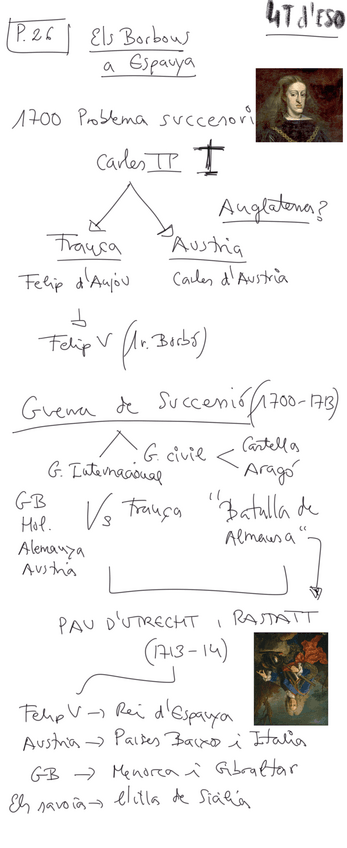 4T d'ESO
P. 26
Els Borbons
a Espanya
1700 Problema successori
Carles II
Anglaterra?
França Austria
Felip d'Anjou Carles d'Austria
Felip V (1r. Borbó)
Guerra de Successió (1700-1713)
G. Internacional G. civil < Castella
Aragó
GB
Hol.
Alemanya
Austria
Vs França
"Batalla de
Almansa"
PAU D'UTRECHT i RASTATT
(1713-14)
Felip V → Rei d'Espanya
Austria → Països Baixos i Italia
GB → Menorca i Gibraltar
Els savoia → l'illa de Sicilia